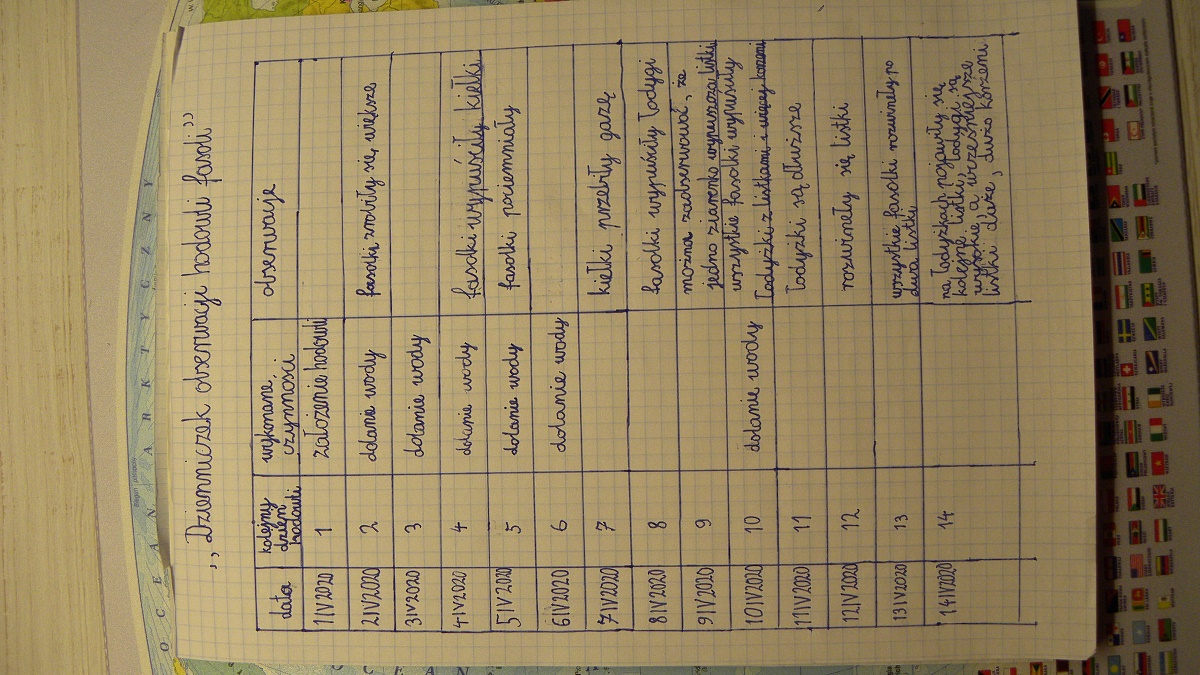 ,,Dzienniczek obserwacji hodowli fasoli"
data kolejny dzień hodowli wykonane czynności obserwacje
1 IV 2020 1 założenie hodowli
2 IV 2020 2 dolanie wody fasolki zrobiły się większe
3 IV 2020 3 dolanie wody
4 IV 2020 4 dolanie wody fasolki wypuściły kiełki
5 IV 2020 5 dolanie wody fasolki pociemniały
6 IV 2020 6 dolanie wody
7 IV 2020 7 kiełki przebiły gazę
8 IV 2020 8 fasolki wypuściły łodygi
9 IV 2020 9 można zaobserwować, że
jedno ziarenko wypuszcza listki
10 IV 2020 10 dolanie wody wszystkie fasolki wypuściły
łodyżki z listkami i więcej korzeni
11 IV 2020 11 łodyżki są dłuższe
12 IV 2020 12 rozwinęły się listki
13 IV 2020 13 wszystkie fasolki rozwinęły po
dwa listki
14 IV 2020 14 na łodyżkach pojawiły się
kolejne listki, łodygi są
wysokie a wcześniejsze
listki duże, dużo korzeni
OCEAN ARKTYCZNY